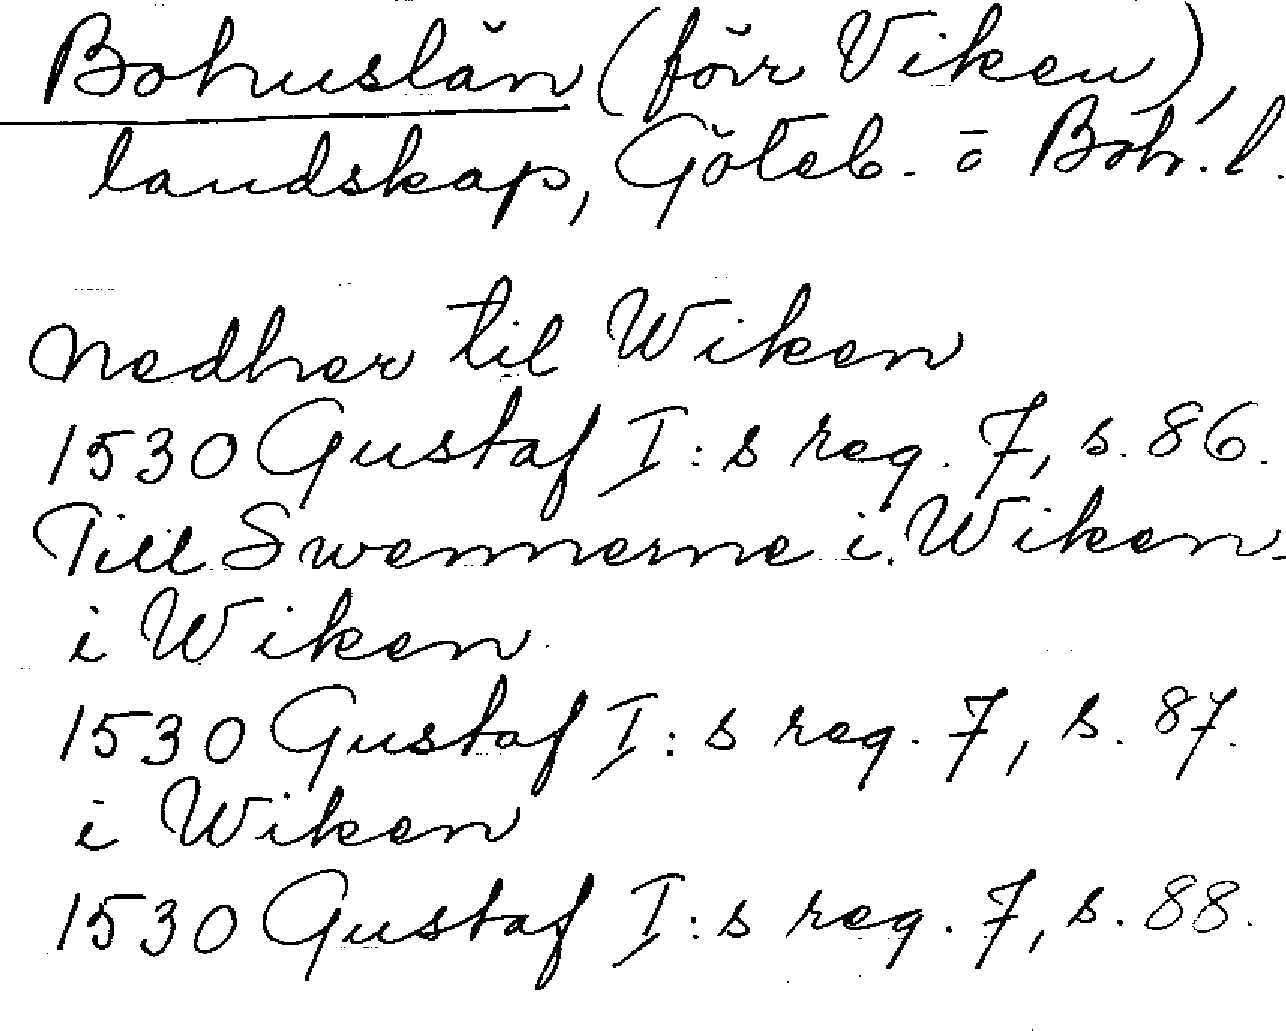 Bohuslän (förr Viken),
landskap, Göteb. o Boh. l.
Nedher til Wiken
1530 Gustaf I:s reg. 7, s. 86.
Till Swennerne i Wiken
i Wiken
1530 Gustaf I:s reg. 7, s. 87.
i Wiken
1530 Gustaf I:s reg. 7, s. 88.